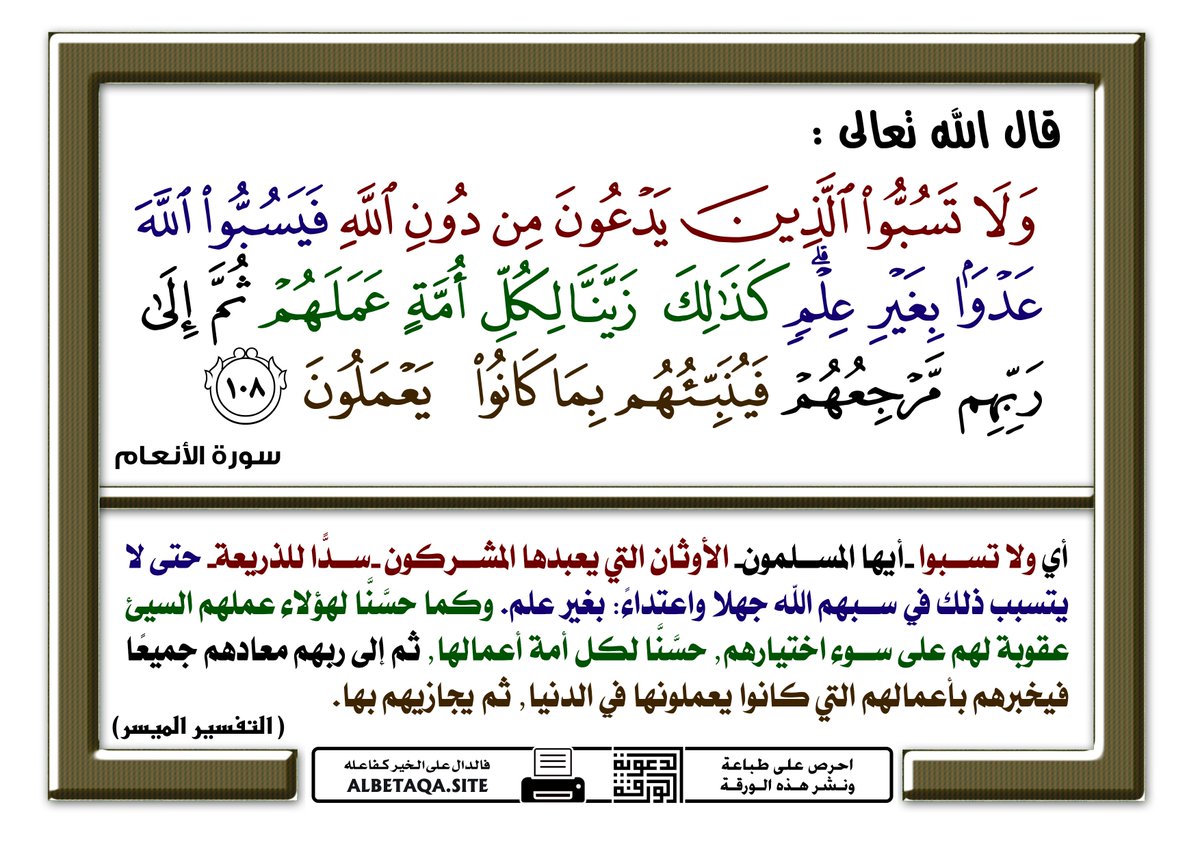 قال الله تعالى :
وَلَا تَسُبُّوا۟ ٱلَّذِينَ يَدْعُونَ مِن دُونِ ٱللَّهِ فَيَسُبُّوا۟ ٱللَّهَ
عَدْوًۢا بِغَيْرِ عِلْمٍۗ كَذَٰلِكَ زَيَّنَّا لِكُلِّ أُمَّةٍ عَمَلَهُمْ ثُمَّ إِلَىٰ
رَبِّهِم مَّرْجِعُهُمْ فَيُنَبِّئُهُم بِمَا كَانُوا۟ يَعْمَلُونَ ١٠٨
سورة الأنعام
أي ولا تسبوا ـ أيها المسلمون ـ الأوثان التي يعبدها المشركون ـ سدًّا للذريعة ـ حتى لا
يتسبب ذلك في سبهم الله جهلا واعتداءً: بغير علم. وكما حسَّنَّا لهؤلاء عملهم السيئ
عقوبة لهم على سوء اختيارهم, حسَّنَّا لكل أمة أعمالها, ثم إلى ربهم معادهم جميعًا
فيخبرهم بأعمالهم التي كانوا يعملونها في الدنيا, ثم يجازيهم بها.
(التفسير الميسر)
احرص على طباعة
ونشر هذه الورقة
الدعوية
الورقة
فالدال على الخير كفاعله
ALBETAQA.SITE